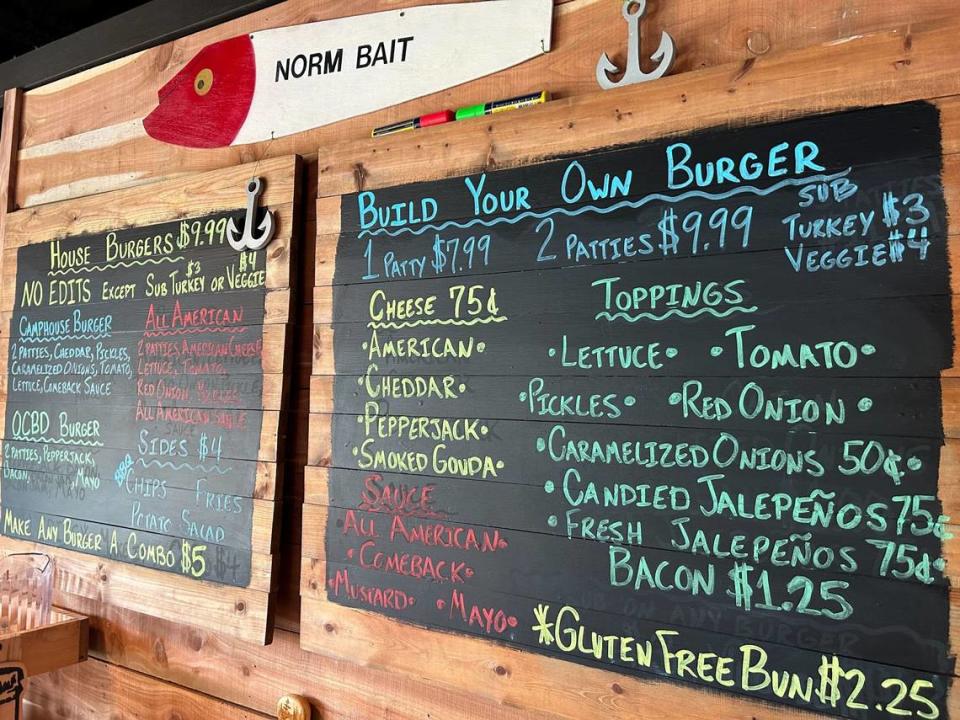 NORM BAIT
HOUSE BURGERS $9.99
NO EDITS EXCEPT SUB TURKEY $3 OR VEGGIE $4
CAMPHOUSE BURGER
2 PATTIES, CHEDDAR, PICKLES,
CARAMELIZED ONIONS, TOMATO,
LETTUCE, COMEBACK SAUCE
OCBD BURGER
2 PATTIES, PEPPERJACK,
BACON, MAYO
ALL AMERICAN
2 PATTIES, AMERICAN CHEESE
LETTUCE, TOMATO,
RED ONION, PICKLES,
ALL AMERICAN SAUCE
SIDES $4
BBQ CHIPS FRIES
POTATO SALAD
MAKE ANY BURGER A COMBO $5
BUILD YOUR OWN BURGER
1 PATTY $7.99 2 PATTIES $9.99
SUB
TURKEY $3
VEGGIE $4
CHEESE 75¢
•AMERICAN•
•CHEDDAR•
•PEPPERJACK•
•SMOKED GOUDA•
SAUCE
ALL AMERICAN•
•COMEBACK•
•MUSTARD• •MAYO•
TOPPINGS
•LETTUCE• •TOMATO•
•PICKLES• •RED ONION•
•CARAMELIZED ONIONS 50¢•
•CANDIED JALEPEÑOS 75¢
•FRESH JALEPEÑOS 75¢•
BACON $1.25
*GLUTEN FREE BUN $2.25